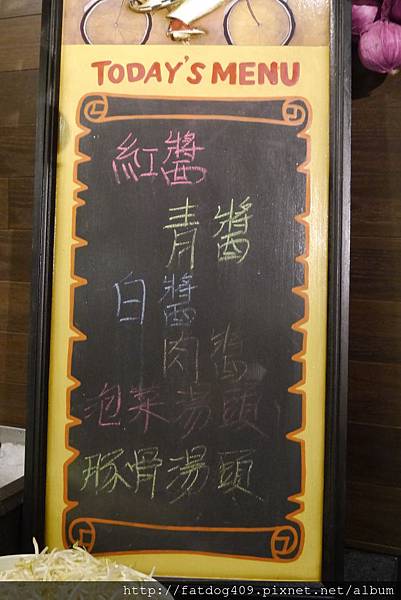 TODAY'S MENU
紅醬
青醬
白醬
肉醬
泡菜湯頭
豚骨湯頭
http://fatdog409.pixnet.net/album